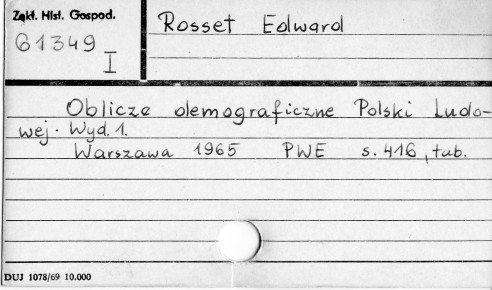 Zakł. Hist. Gospod.
61349
I
Rosset Edward
Oblicze demograficzne Polski Ludo-
wej. Wyd. 1.
Warszawa 1965 PWE s. 416, tab.
DUJ 1078/69 10.000